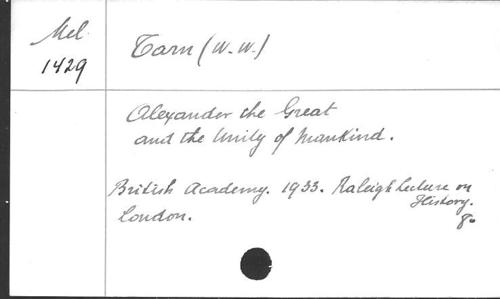 Mel.
1429
Tarn (W.W.)
Alexander the Great
and the Unity of Mankind.
British Academy. 1933. Raleigh Lecture on
History.
London.
8o